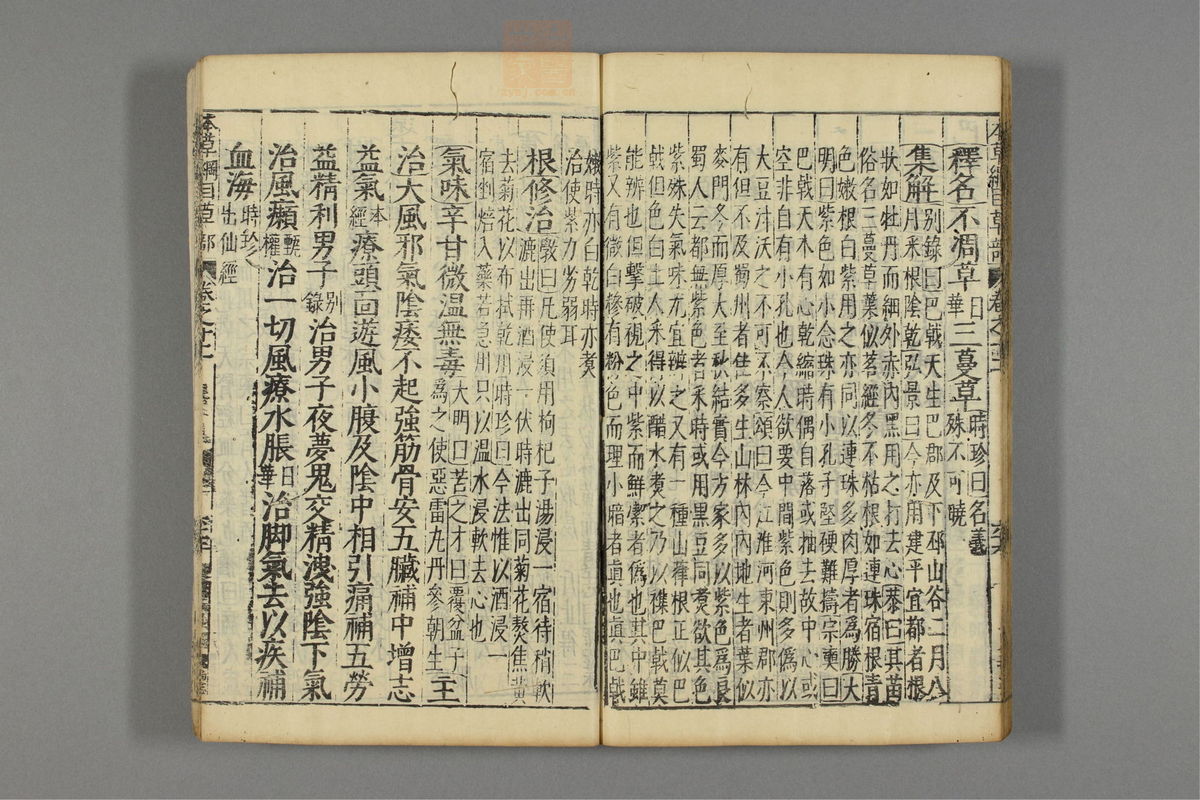 本草綱目草部 卷之十二 六十六
釋名不凋草日華三蔓草時珍曰名義殊不可曉
集解別錄曰巴戟天生巴郡及下邳山谷二月八月采根陰乾弘景曰今亦用建平宜都者根
狀如牡丹而細外赤內黑用之打去心恭曰其苗
俗名三蔓草葉似茗經冬不枯根如連珠宿根青
色嫩根白紫用之亦同以連珠多肉厚者爲勝大
明曰紫色如小念珠有小孔子堅硬難擣宗奭曰
巴戟天本有心乾縮時偶自落或抽去故中心或
空非自有小孔也今人欲要中間紫色則多僞以
大豆汁沃之不可不察頌曰今江淮河東州郡亦
有但不及蜀州者佳多生山林內內地生者葉似
麥門冬而厚大至秋結實今方家多以紫色爲良
蜀人云都無紫色者采時或用黑豆同煑欲其色
紫殊失氣味尤宜辨之又有一種山葎根正似巴
戟但色白土人采得以醋水煑之乃以襍巴戟莫
能辨也但擊破視之中紫而鮮潔者僞也其中雖
紫又有微白糝有粉色而理小暗者眞也眞巴戟
嫩時亦白乾時亦煑
治使紫力劣弱耳
根修治斆曰凡使須用枸杞子湯浸一宿待稍軟漉出再酒浸一伏時漉出同菊花熬焦黃
去菊花以布拭乾用時珍曰今法惟以酒浸一
宿剉焙入藥若急用只以溫水浸軟去心也
氣味辛甘微溫無毒大明曰苦之才曰覆盆子爲之使惡雷丸丹參朝生主
治大風邪氣陰痿不起強筋骨安五臟補中增志
益氣本經療頭面遊風小腹及陰中相引痛補五勞
益精利男子別錄治男子夜夢鬼交精洩強陰下氣
治風癩甄權治一切風療水脹日華治脚氣去以疾補
血海時珍出仙經
本草綱目草部 卷之十二